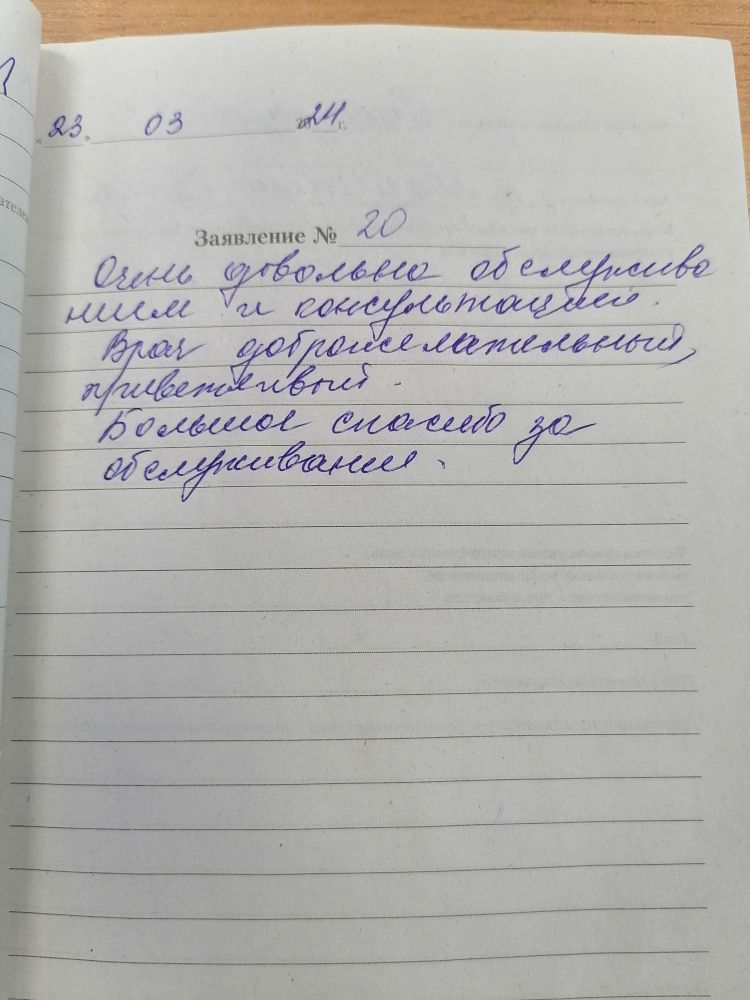 "23" 03 2024 г.
Заявление № 20
Очень довольна обслужива
нием и консультацией.
Врач доброжелательный,
приветливый.
Большое спасибо за
обслуживание.